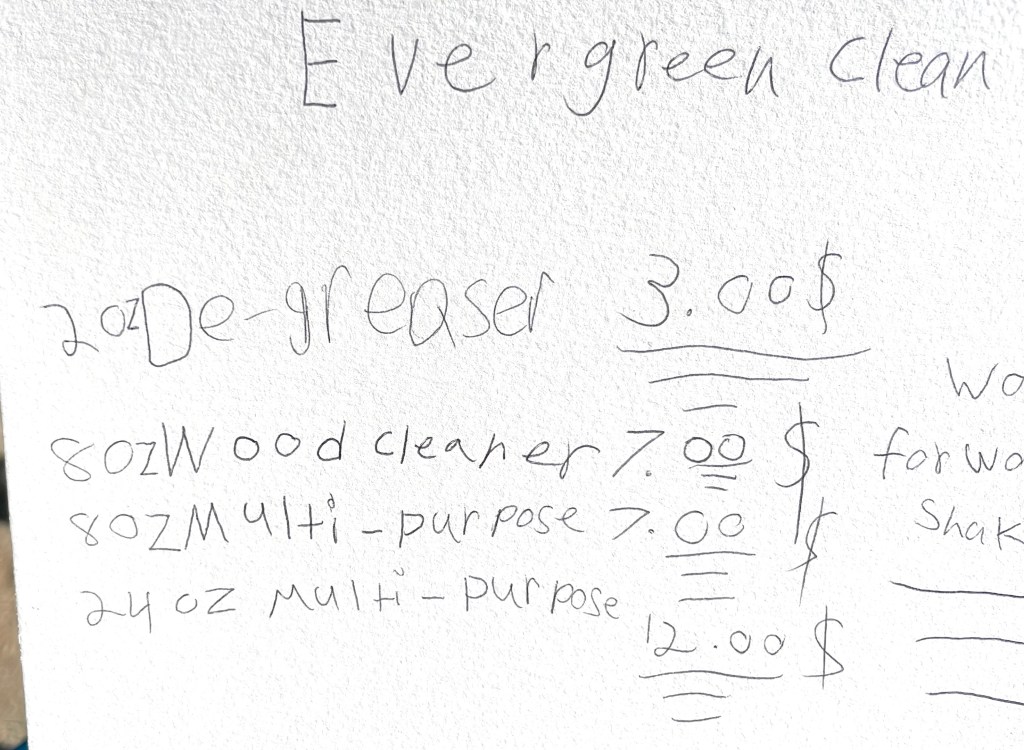 Evergreen Clean
2oz De-greaser 3.00$
8oz Wood cleaner 7.00 $
for
8oz Multi-purpose 7.00 $
24 oz Multi-purpose
12.00 $